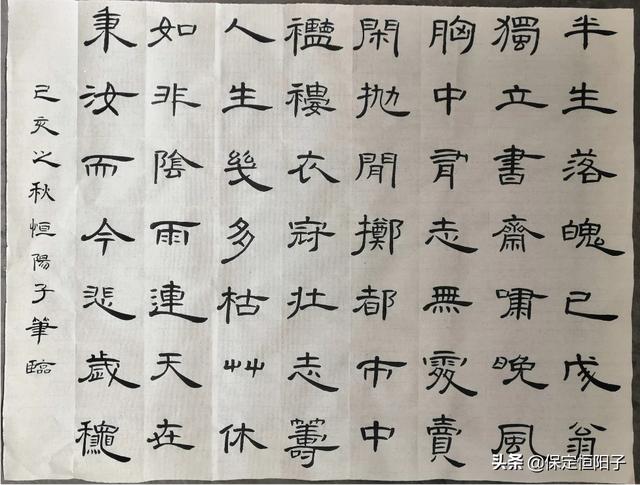 半生落魄已成翁
獨立書齋嘯晚風
胸中有志無處賣
閑拋閒擲都市中
襤褸衣冠壯志籌
人生幾多枯艸休
如非陰雨連天在
秉汝而今悲歲穐
己亥之秋恒陽子筆臨
头条 @保定恒阳子